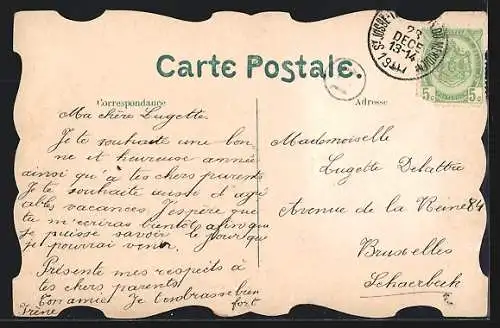 Carte Postale.
Correspondance
Adresse
23
DECE
13-14
5c 5c
Ma chère Lugette.
Je te souhaite une bon-
ne et heureuse année
ainsi qu'à tes chers parents
Je te souhaite aussi d'agé
ables vacances. J'espère que
tu m'écriras bientôt afin que
je puisse savoir le jour que
je pourrai venir.
Présente mes respects à
tes chers parents.
Ton amie Je t'embrasse bien
fort
Irène
Mademoiselle
Lugette Delattre
Avenue de la Reine 84
Bruxelles
Schaerbeek